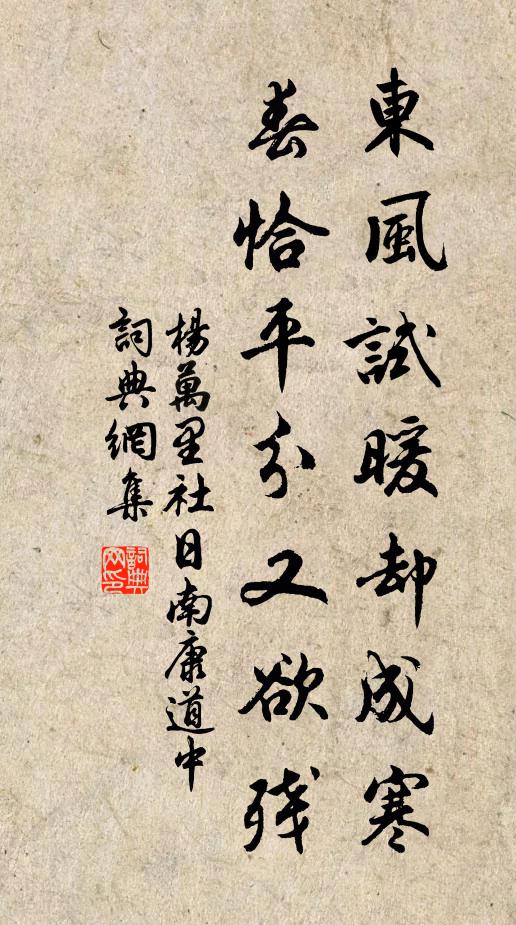 東風試暖却成寒
春恰平分又欲残
楊萬里社日南康道中
詞典網集
詞典网印